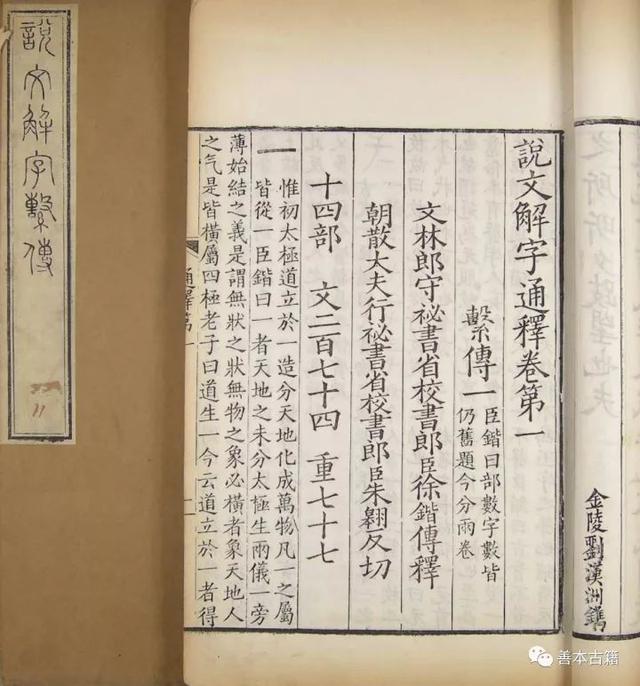 說文解字繫傳
11
說文解字通釋卷第一
繫傳一
臣鍇曰部數字數皆
仍舊題今分兩卷
文林郎守祕書省校書郎臣徐鍇傳釋
朝散大夫行祕書省校書郎臣朱翱反切
十四部 文二百七十四 重七十七
一
惟初太極道立於一造分天地化成萬物凡一之屬
皆從一臣鍇曰一者天地之未分太極生兩儀一旁
薄始結之義是謂無狀之狀無物之象必橫者象天地人
之气是皆橫屬四極老子曰道生一今云道立於一者得
通釋第一
金陵劉漢洲鐫
善本古籍